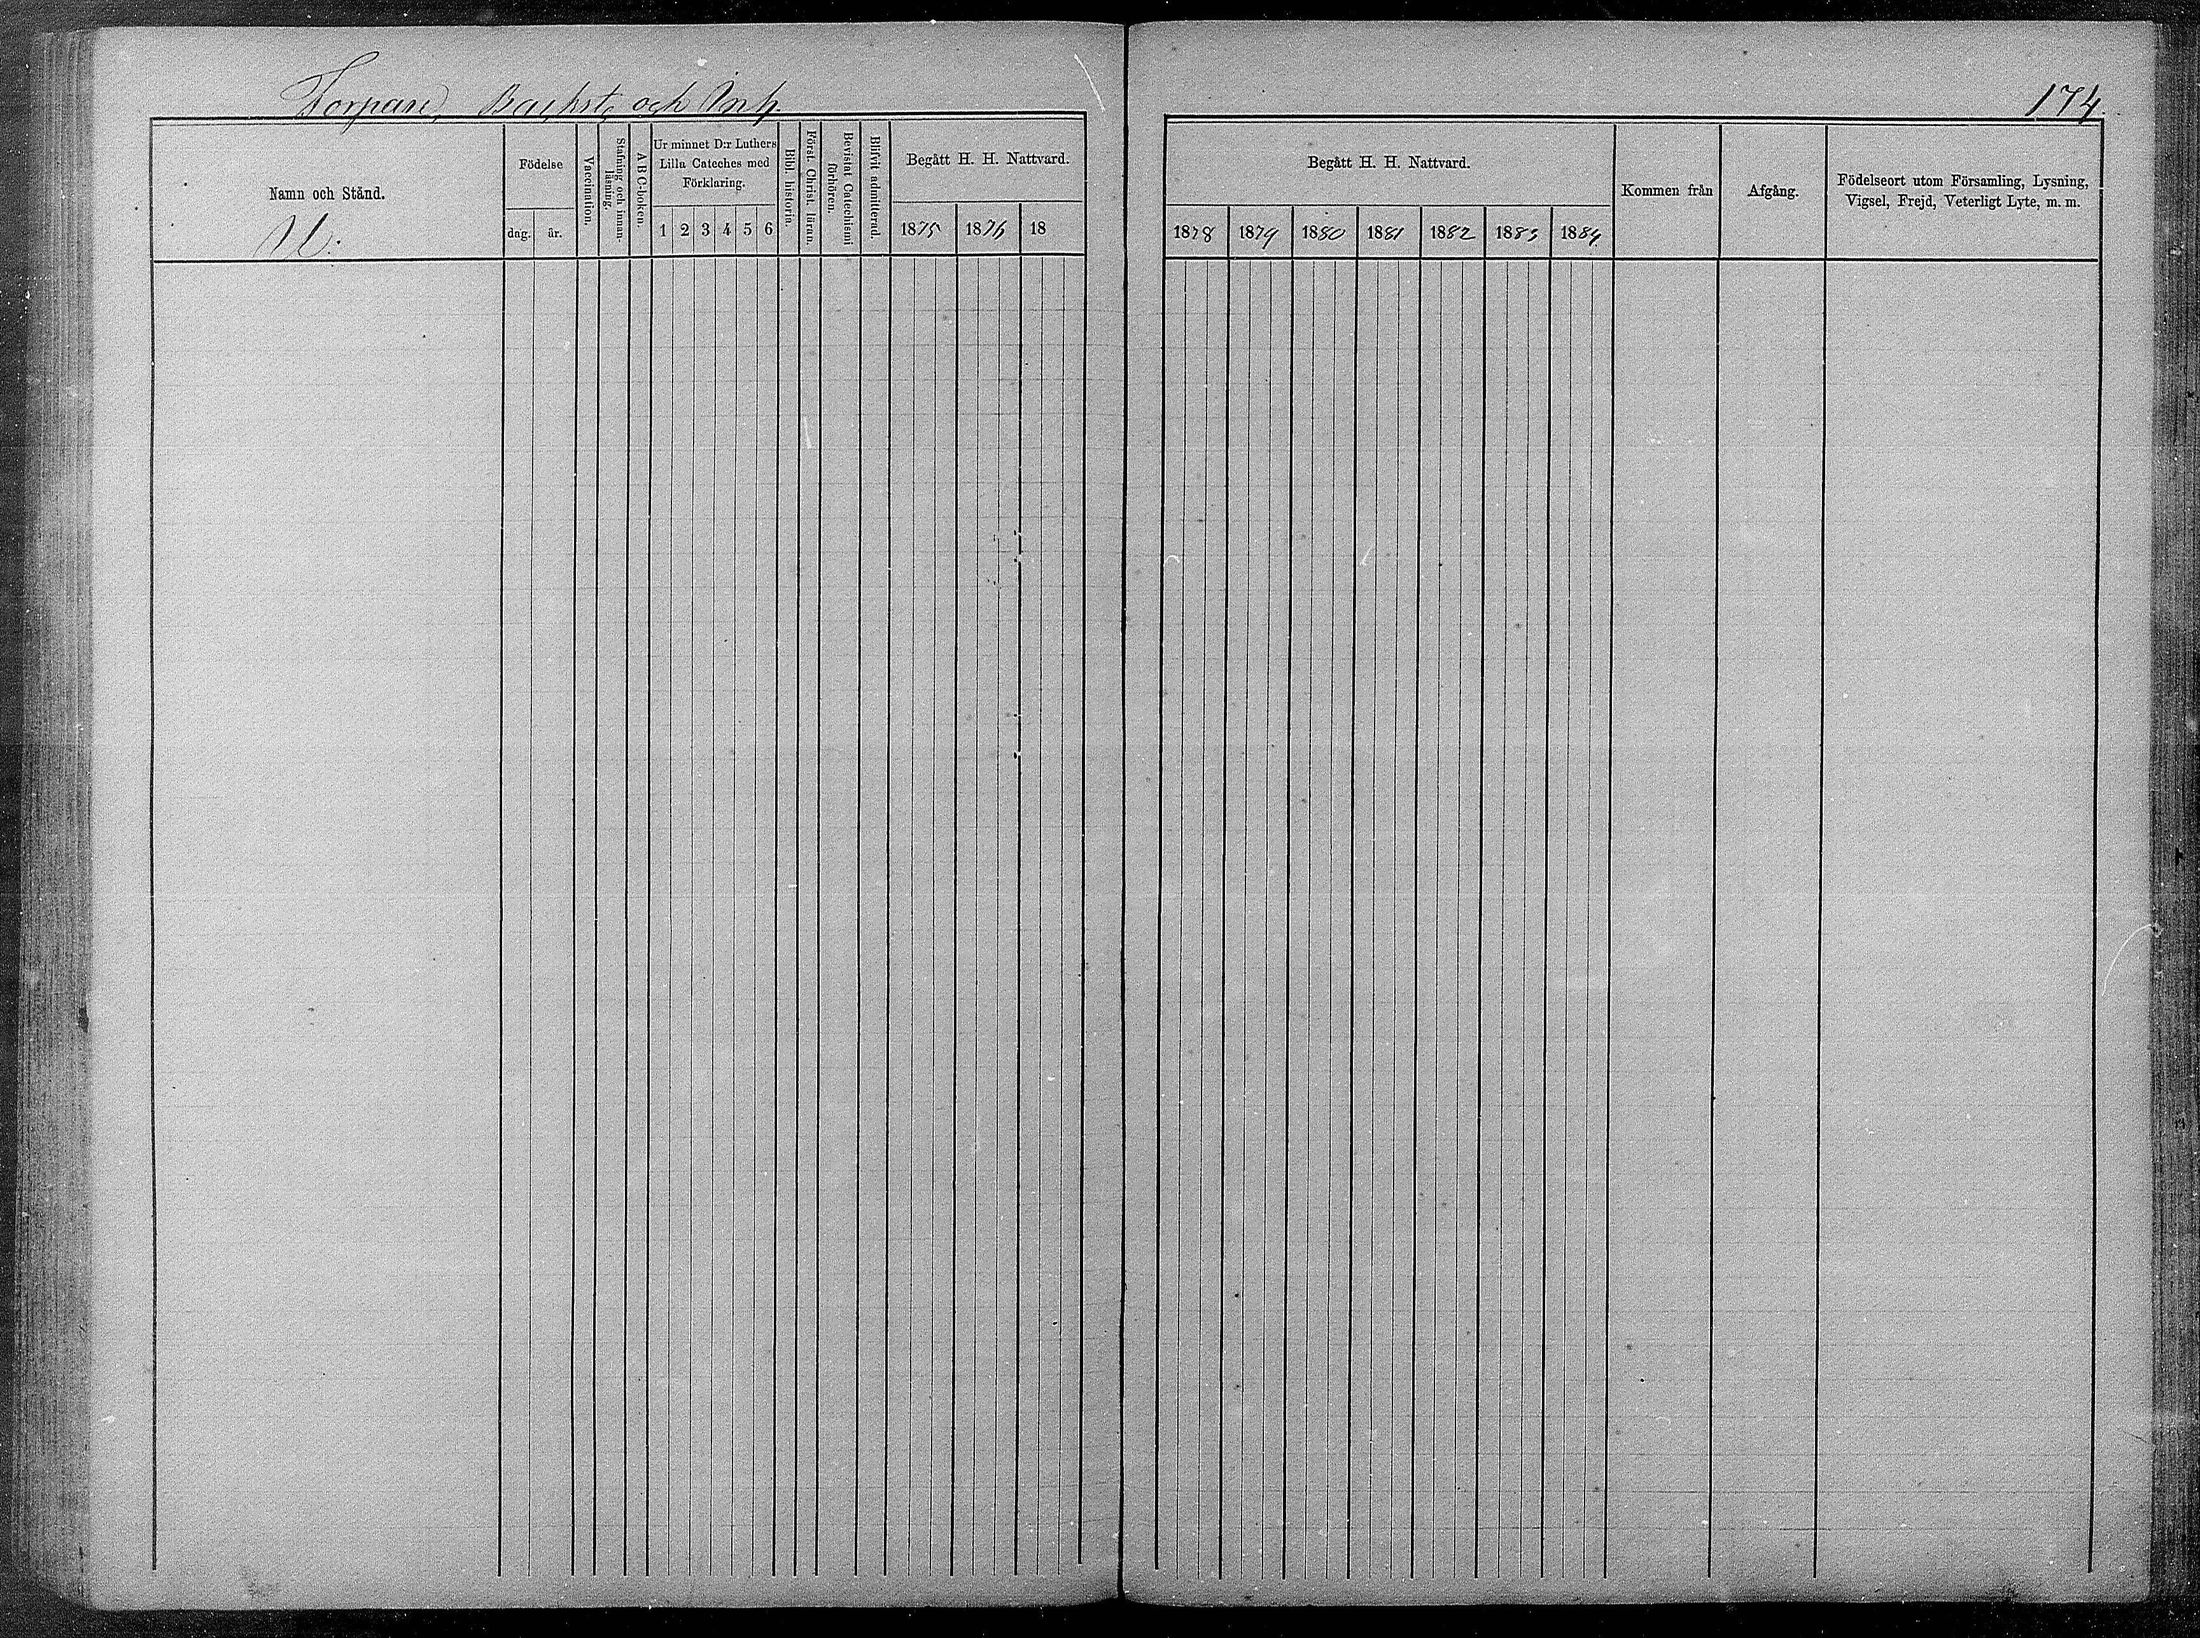 Torpare, Backst. och Inh.
174.
Namn och Stånd.
U.
Födelse
dag. år.
Vaccination.
Stafning och innan-
läsning.
A B C-boken.
Ur minnet D:r Luthers
Lilla Cateches med
Förklaring.
1 2 3 4 5 6
Bibl. historia.
Först. Christ. läran.
Bevistat Catechismi
förhören.
Blifvit admitterad.
Begått H. H. Nattvard.
1875 1876 18
Begått H. H. Nattvard.
1878 1879 1880 1881 1882 1883 1884
Kommen från
Afgång.
Födelseort utom Församling, Lysning,
Vigsel, Frejd, Veterligt Lyte, m. m.